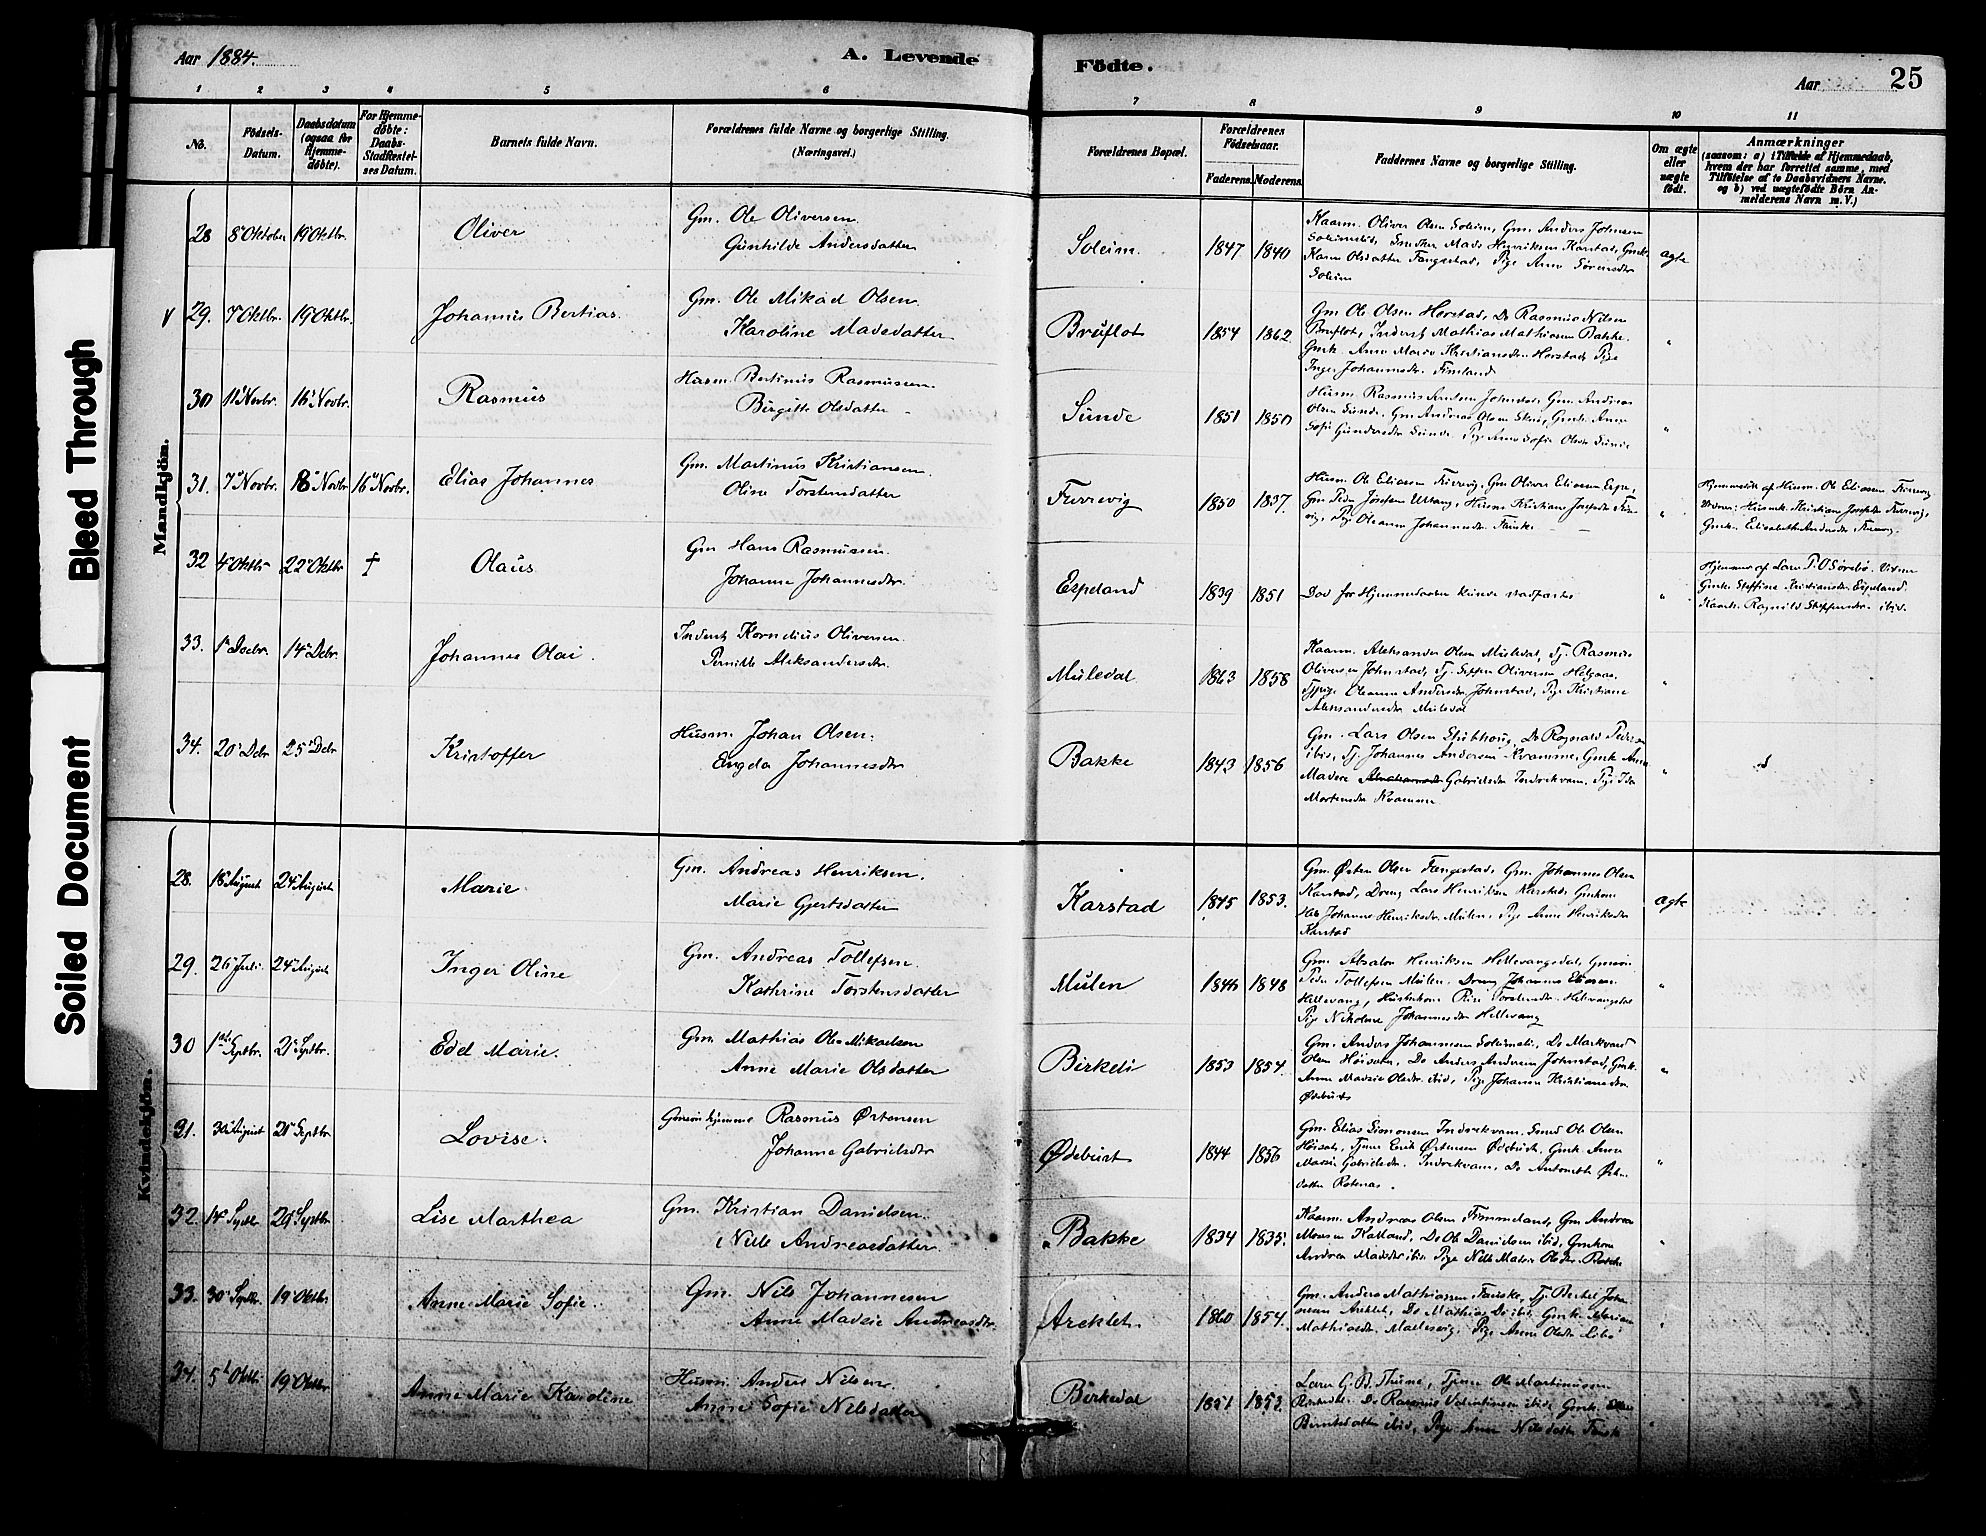 Aar 1884.
A. Levende Födte.
Aar
25
1 2 3 4 5 6 7 8 9 10 11
No.
Födsels-Datum.
Daabsdatum (ogsaa for Hjemmedöbte).
For Hjemmedöbte: Daabs-Stadfæstelses Datum.
Barnets fulde Navn.
Forældrenes fulde Navne og borgerlige Stilling.
(Næringsvei.)
Forældrenes Bopæl.
Forældrenes Födselsaar.
Faderens. Moderens.
Faddernes Navne og borgerlige Stilling.
Om ægte eller uægte födt.
Anmærkninger
(saasom: a) i Tilfælde af Hjemmedaab, hvem der har forrettet samme, med Tilföielse af to Daabsvidners Navne, og b) ved uægtefödte Börn Anmelderens Navn m. V.)
Bleed Through
Soiled Document
Mandkjön.
28 8 Oktober 19 Oktbr. Oliver
Gm. Ole Oliversen
Gunhilde Andersdatter
Soleim. 1847 1840
Kaarm. Oliver Olsen Soleim, Gm. Anders Johnsen
Soleimslid, Mads Henriksen Karstad, Gmk.
Karen Olsdatter Fangestad, Pige Anne Sörensdr
Soleim
ægte
V 29. 7 Oktbr. 19 Oktbr. Johannes Bertias.
Gm. Ole Mikal Olsen.
Karoline Madsdatter
Bruflot 1854 1862
Gm Ole Olsen Herstad, Do Rasmus Nilsen
Bruflot, Inderst Mathias Mathiasen Bakke.
Gmk. Anne Marie Kristiansdr. Herstad, Pige
Inger Johannesdr. Timland
"
30 11 Novbr. 16 Novbr. Rasmus
Husm. Bertinus Rasmussen.
Birgitte Olsdatter
Sunde 1851 1850
Husm. Rasmus Johnstad, Gm. Andreas
Olsen Sunde, Gm Andreas Olsen, Gmk. Anne
Sofie Gundersdr Sunde. Pige Anne Sofie Olsdr Sunde
"
31. 7 Novbr. 8 Novbr 16 Novbr. Elias Johannes
Gm. Martinus Kristiansen.
Oline Torstensdatter
Furrevig 1850 1837.
Husm. Ole Eliassen Furrevig, Gm Oliver Eliassen Espe,
Gm Peder Josefsen, Husm. Kristian Josefsen
Pige Oleanne Johannesdr. Fauske
"
Hjemmedöbt af Husm. Ole Eliassen Furrevig
Vidner: Husmk. Kristiane Josefsdr Furrevig,
Gmk. Elisabeth Andersdr Furrevig.
32 4 Oktbr 22 Oktbr † Olaus
Gm Hans Rasmussen.
Johanne Johannesdr.
Espeland 1839 1851
Död før Hjemmedaaben kunde stadfæstes
"
Hjemmed. af Lærer P. O Sørebø. Vidner
Gmk. Steffine Kristiansdr Espeland.
Kaark. Ragnild Steffensdr. ibid.
33. 1 Decbr. 14 Debr. Johannes Olai.
Inderst Kornelius Oliversen.
Pernille Aleksandersdr.
Muledal 1863 1858
Kaarm. Aleksander Olsen Muledal, Tj. Rasmus
Oliversen Johnstad, Tj. Steffen Oliversen Helgaas.
Tjpige Oleanne Andersdr Johnstad, Pige Kristiane
Aleksandersdr Muledal
"
34. 20 Debr 25 Debr Kristoffer
Husm. Johan Olsen.
Engda Johannesdr
Bakke 1843 1856
Gm. Lars Olsen Stubhaug, Do Ragnald Pedersen
ibid, Tj. Johannes Andersen Kvamme, Gmk Anne
Madsie Gabrielsdr Indrekvam, Pige Ida
Mortensdr Kvamme.
"
Kvindekjön.
28. 18 August 24 August Marie
Gm. Andreas Henriksen.
Marie Gjertsdatter
Karstad 1845 1853.
Gm. Østen Olsen Fangestad, Gm. Johannes Olsen
Karstad, Dreng Lars Henriksen Karstad, Gmkone
Johanne Henriksdr. Mulen, Pige Anne Henriksdr
Karstad
ægte
29. 26 Juli. 24 August Inger Oline
Gm. Andreas Tollefsen.
Kathrine Torstensdatter
Mulen 1848
Gm. Absalon Henriksen Hellevangsdal, Gmsøn
Peder Tollefsen Mulen. Dreng Johannes Eliassen
Hellevang, Huskone Torstensdr. Hellevangsdal
Pige Nikoline Johannesdr Hellevang
"
30 1ste Septbr. 21 Septbr. Edel Marie.
Gm. Mathias Ole Mikaelsen
Anne Marie Olsdatter
Birkeli 1853 1854.
Gm. Anders Johannesen Soleimslid, Do Markvard
Olsen Høisæter, Do Anders Andersen Johnstad, Gmk.
Anne Madsie Olsdr. ibid, Pige Johanne Kristiansdr.
Ødebust
"
31. 30 August 21 Septbr Lovise.
Gmsøn hjemme Rasmus Østensen
Johanne Gabrielsdr
Ødebust 1844 1856
Gm. Elias Simonsen Indrekvam. Smed Ole Olsen
Høisæt, Tjener Erik Østensen Ødebust, Gmk. Anne
Marie Gabrielsdr. Indrekvam, Do Antonette
datter Rotenes.
"
32. 14 Septbr 21 Septbr Lise Marthea
Gm. Kristian Danielsen.
Nille Andreasdatter
Bakke 1834 1835.
Kaarm. Andreas Olsen Timmeland, Gm Andreas
Monsen Kalland, Do Ole Danielsen ibid, Gmkone
Andrea Madsdr ibid. Pige Nille Malene Olsdr.
"
33. 30 Septbr. 19 Oktbr. Anne Marie Sofie.
Gm. Nils Johannesen
Anne Madsie Andreasdtr.
Areklet. 1860 1854.
Gm. Anders Mathiassen Fauske, Tj. Bertel Johannesen
Areklet, Do Mathias Do ibid, Gmk. Mariane
Mathiasdr. Maelesvig, Pige Anne Olsdr
34. 5 Oktbr. 19 Oktbr Anne Marie Karoline
Husm. Anders Nilsen.
Anne Sofie Nilsdatter
Birkedal 1851 1853.
Lærer G. B. Thune, Tjener Ole Martinussen
Do Rasmus Valentinsen ibid, Gmk.
Berntsdatter ibid, Pige Anne Nilsdatter
"